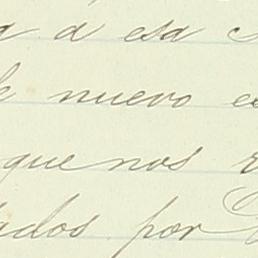 a á esa
de nuevo
que nos
ados por